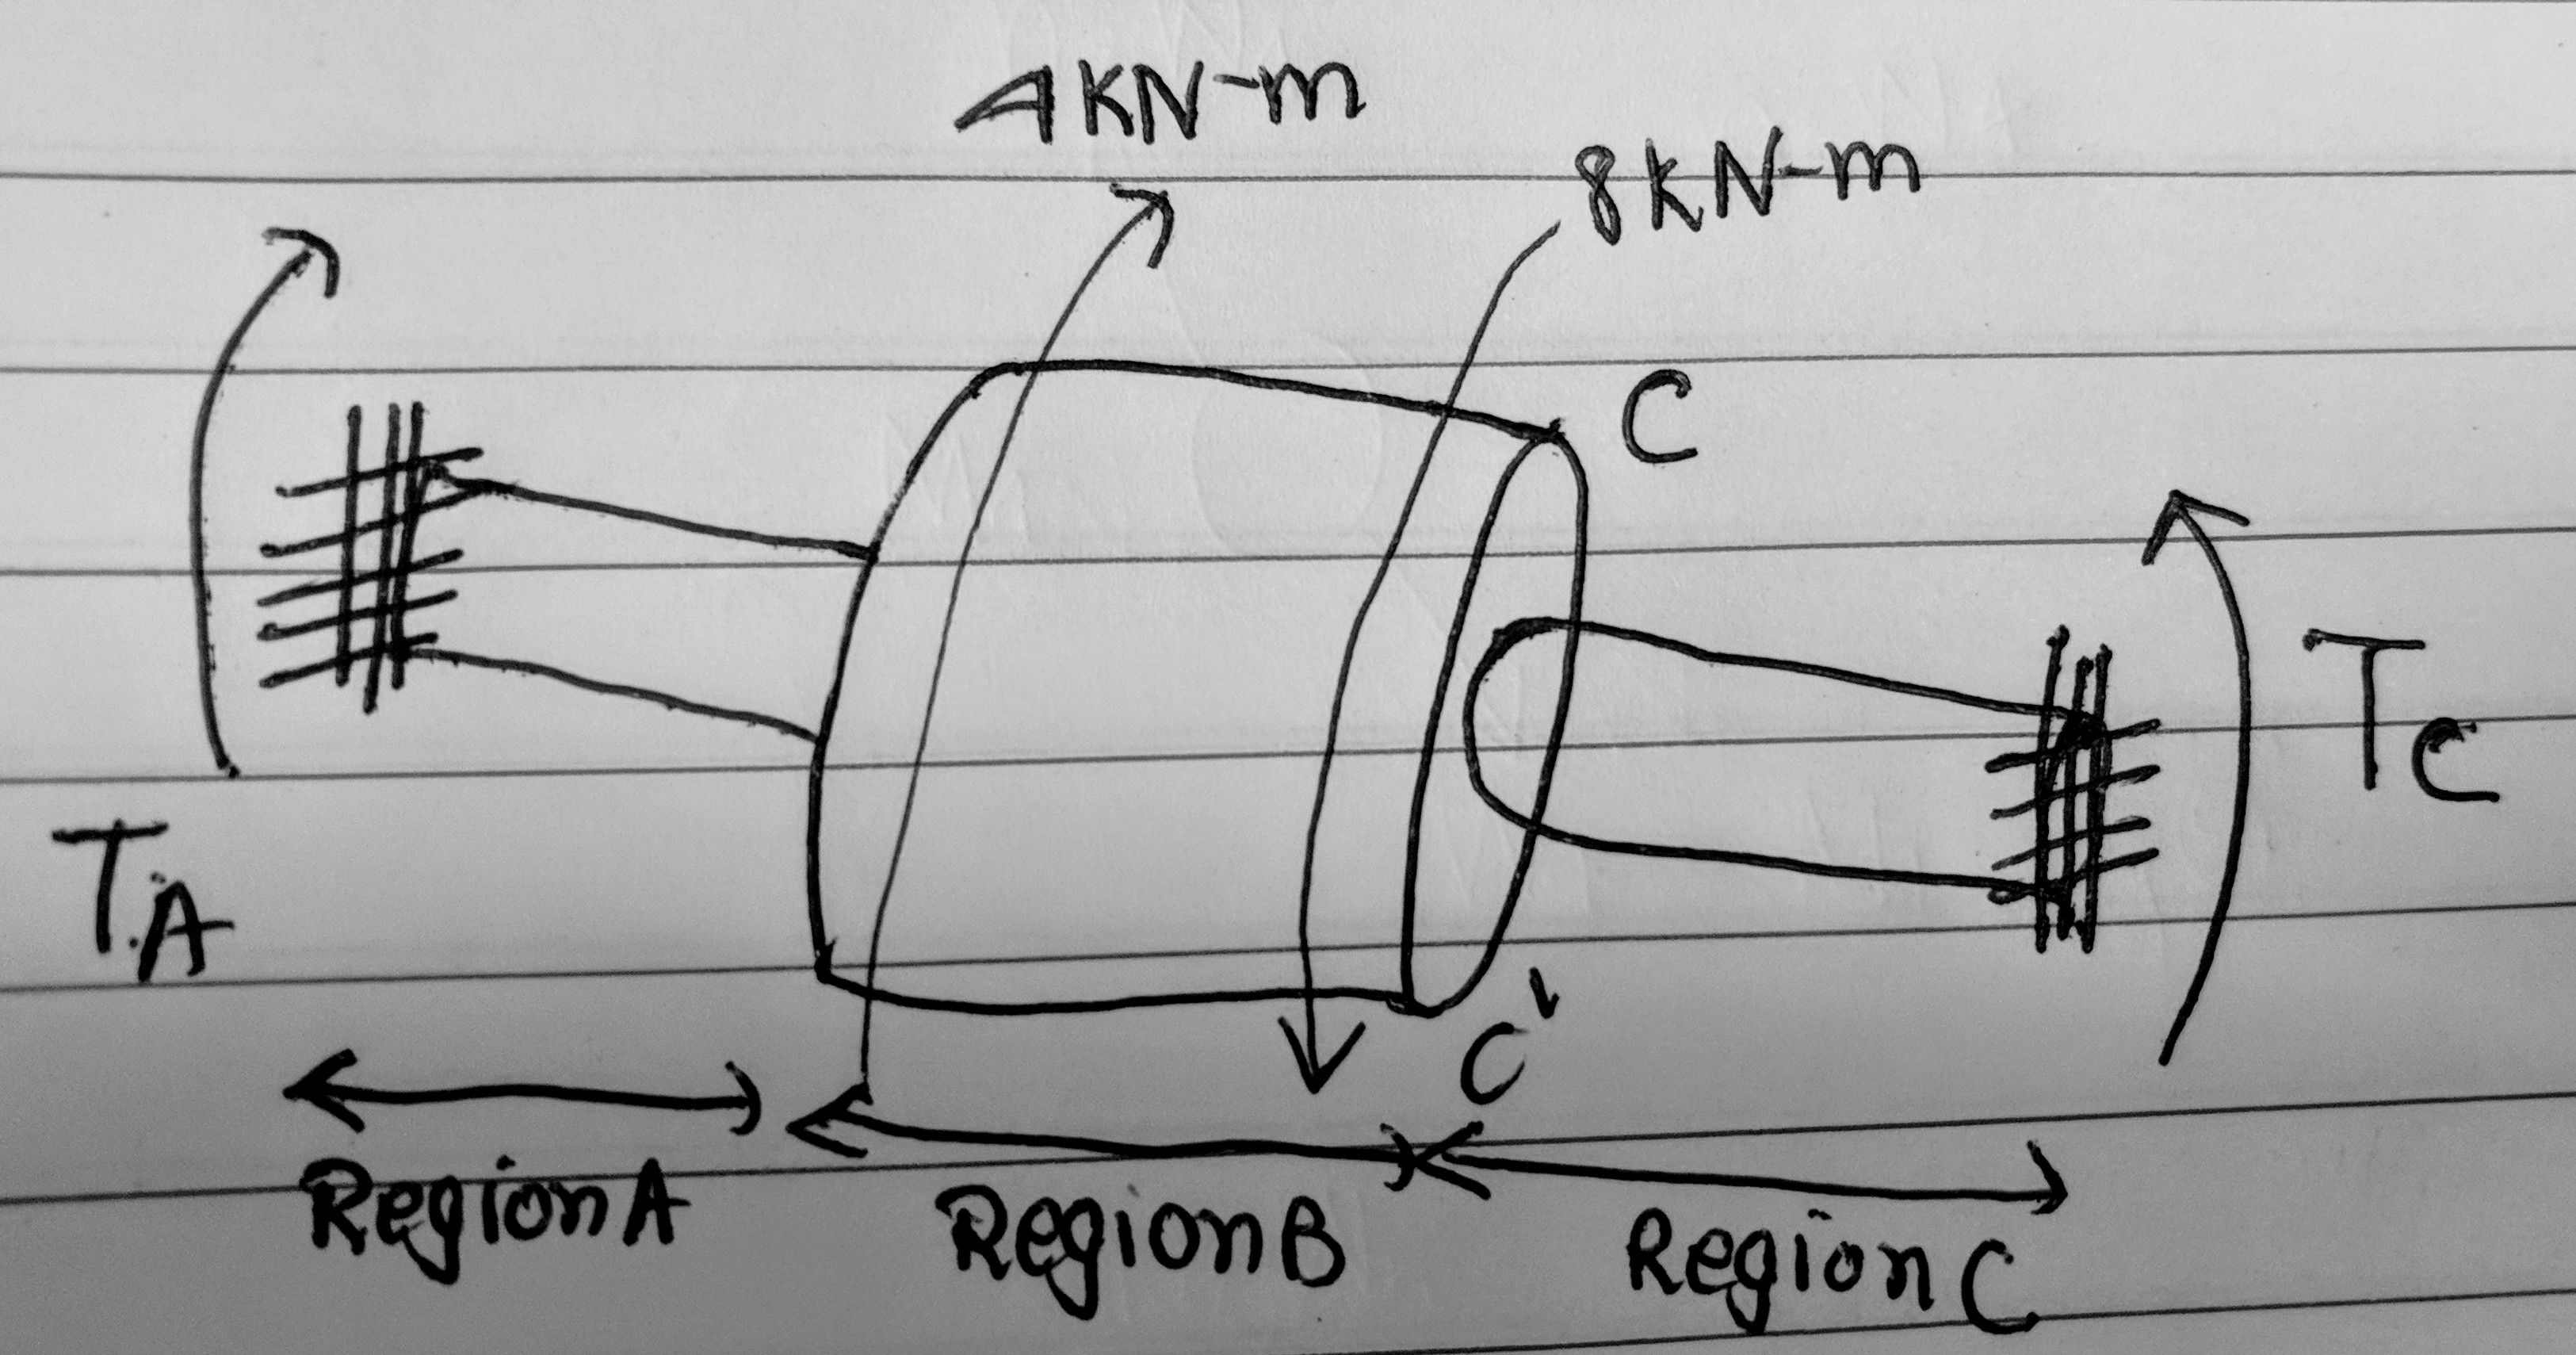 4KN-m
8KN-m
C
TC
TA
C'
Region A
Region B
Region C